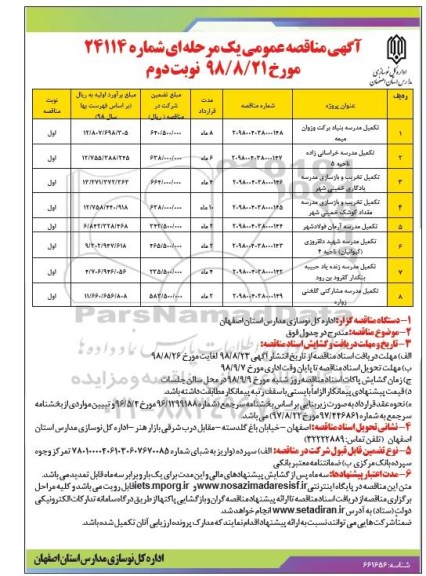 آگهی مناقصه عمومی یک مرحله ای شماره ۲۴۱۱۴
مورخ ۹۸/۸/۲۱ نوبت دوم
اداره کل نوسازی
مدارس استان اصفهان
ردیف
عنوان پروژه
شماره مناقصه
مدت قرارداد
مبلغ تضمین شرکت در مناقصه (ریال)
مبلغ برآورد اولیه به ریال (بر اساس فهرست بها سال ۹۸)
نوبت مناقصه
۱ تکمیل مدرسه بنیاد برکت وزوان میمه ۲۰۹۸۰۰۴۰۳۸۰۰۰۱۴۸ ۸ ماه ۶۴۰/۵۰۰/۰۰۰ ۱۲/۸۰۷/۶۹۸/۲۰۵ اول
۲ تکمیل مدرسه خراسانی زاده ناحیه ۵ ۲۰۹۸۰۰۴۰۳۸۰۰۰۱۴۷ ۶ ماه ۶۳۸/۰۰۰/۰۰۰ ۱۲/۷۵۵/۳۸۸/۲۴۵ اول
۳ تکمیل تخریب و بازسازی مدرسه یادگاری خمینی شهر ۲۰۹۸۰۰۴۰۳۸۰۰۰۱۴۶ ۶۶۴/۰۰۰/۰۰۰ ۱۳/۲۷۱/۲۷۲/۳۶۳ اول
۴ تکمیل تخریب و بازسازی مدرسه مقداد کوشک خمینی شهر ۲۰۹۸۰۰۴۰۳۸۰۰۰۱۴۵ ۱۰ ماه ۶۳۸/۰۰۰/۰۰۰ ۱۲/۷۵۸/۴۴۰/۹۱۸ اول
۵ تکمیل مدرسه آرمان فولادشهر ۲۰۹۸۰۰۴۰۳۸۰۰۰۱۴۴ ۲ ماه ۳۴۲/۵۰۰/۰۰۰ ۶/۸۴۲/۳۳۸/۴۶۸ اول
۶ تکمیل مدرسه شهید دلفروزی (کیوانیان) ناحیه ۴ ۲۰۹۸۰۰۴۰۳۸۰۰۰۱۴۳ ۳ ماه ۴۶۵/۵۰۰/۰۰۰ ۹/۳۰۲/۹۴۷/۶۱۸ اول
۷ تکمیل مدرسه زنده یاد حبیبه بنکدار کفرود بن رود ۴ ماه ۲۳۵/۵۰۰/۰۰۰ ۴/۷۰۶/۹۴۶/۰۵۶ اول
۸ تکمیل مدرسه مشارکتی گلختی زواره ۲۰۹۸۰۰۴۰۳۸۰۰۰۱۴۹ ۲ ماه ۵۸۳/۵۰۰/۰۰۰ ۱۱/۶۶۰/۶۵۶/۸۰۸ اول
۱- دستگاه مناقصه گزار: اداره کل نوسازی مدارس استان اصفهان
۲- موضوع مناقصه: مندرج در جدول فوق
۳- تاریخ و مهلت دریافت و گشایش اسناد مناقصه:
الف) مهلت دریافت اسناد مناقصه از تاریخ انتشار آگهی ۹۸/۸/۲۳ لغایت مورخ ۹۸/۸/۲۶
ب) مهلت تحویل اسناد مناقصه تا پایان وقت اداری مورخ ۹۸/۹/۷
ج) زمان گشایش پاکات اسناد مناقصه روز شنبه مورخ ۹۸/۹/۹ در محل سالن جلسات
د) قیمت پیشنهادی پیمانکار الزاماً بایستی با سقف رتبه پیمانکار مطابقت داشته باشد.
ه) نحوه عقد قرارداد به صورت زیربنایی بر اساس بخشنامه سرجمع (شماره ۹۶/۱۲۹۹۱۸۸ مورخ ۹۶/۵/۴ و تبیین مواردی از بخشنامه
سرجمع به شماره ۹۷/۴۴۶۸۶۱ مورخ ۹۷/۸/۲۲) می باشد.
۴- نشانی تحویل اسناد مناقصه: اصفهان - خیابان باغ گلدسته - مقابل درب شرقی بازار هنر - اداره کل نوسازی مدارس استان
اصفهان (تلفن تماس: ۳۲۲۲۲۸۸۹)
۵- نوع تضمین قابل قبول شرکت در مناقصه: الف) سپرده (واریز به شبای شماره تمرکز وجوه
سپرده بانک مرکزی ب) ضمانتنامه معتبر بانکی
۶- مدت اعتبار پیشنهادها: سه ماه پس از گشایش پیشنهادهای مالی و این مدت برای یک بار و برابر سه ماه قابل تمدید می باشد.
متن این مناقصه در پایگاه اینترنتی www.nosazimadaresisf.ir و iets.mporg.ir قابل رویت می باشد و کلیه مراحل
برگزاری مناقصه از دریافت اسناد مناقصه تا ارائه پیشنهاد مناقصه گران و بازگشایی پاکتها از طریق درگاه سامانه تدارکات الکترونیکی
دولت (ستاد) به آدرس www.setadiran.ir انجام خواهد شد.
ضمناً شرکت هایی می توانند نسبت به ارائه پیشنهاد اقدام نمایند که مدارک پرونده ارزیابی آنان تکمیل شده باشد.
اداره کل نوسازی مدارس استان اصفهان
شناسه: ۶۶۱۶۵۶